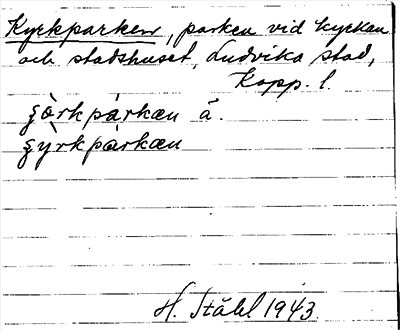 Kyrkparken, parken vid kyrkan
och stadshuset, Ludvika stad,
Kopp. l.
ʂö̀rkpárkæn å.
ʂỳrkpàrkæn
H. Ståhl 1943.